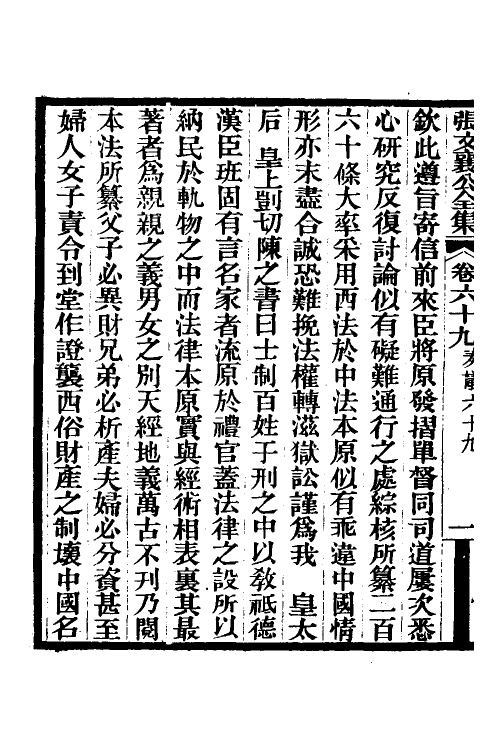 張文襄公全集 卷六十九 奏議六十九 一
欽此遵旨寄信前來臣將原發摺單督同司道屢次悉
心研究反復討論似有礙難通行之處綜核所纂二百
六十條大率采用西法於中法本原似有乖違中國情
形亦未盡合誠恐難挽法權轉滋獄訟謹爲我 皇太
后 皇上剴切陳之書曰士制百姓于刑之中以敎祗德
漢臣班固有言名家者流原於禮官蓋法律之設所以
納民於軌物之中而法律本原實與經術相表裏其最
著者爲親親之義男女之別天經地義萬古不刊乃閱
本法所纂父子必異財兄弟必析產夫婦必分資甚至
婦人女子責令到堂作證襲西俗財產之制壞中國名